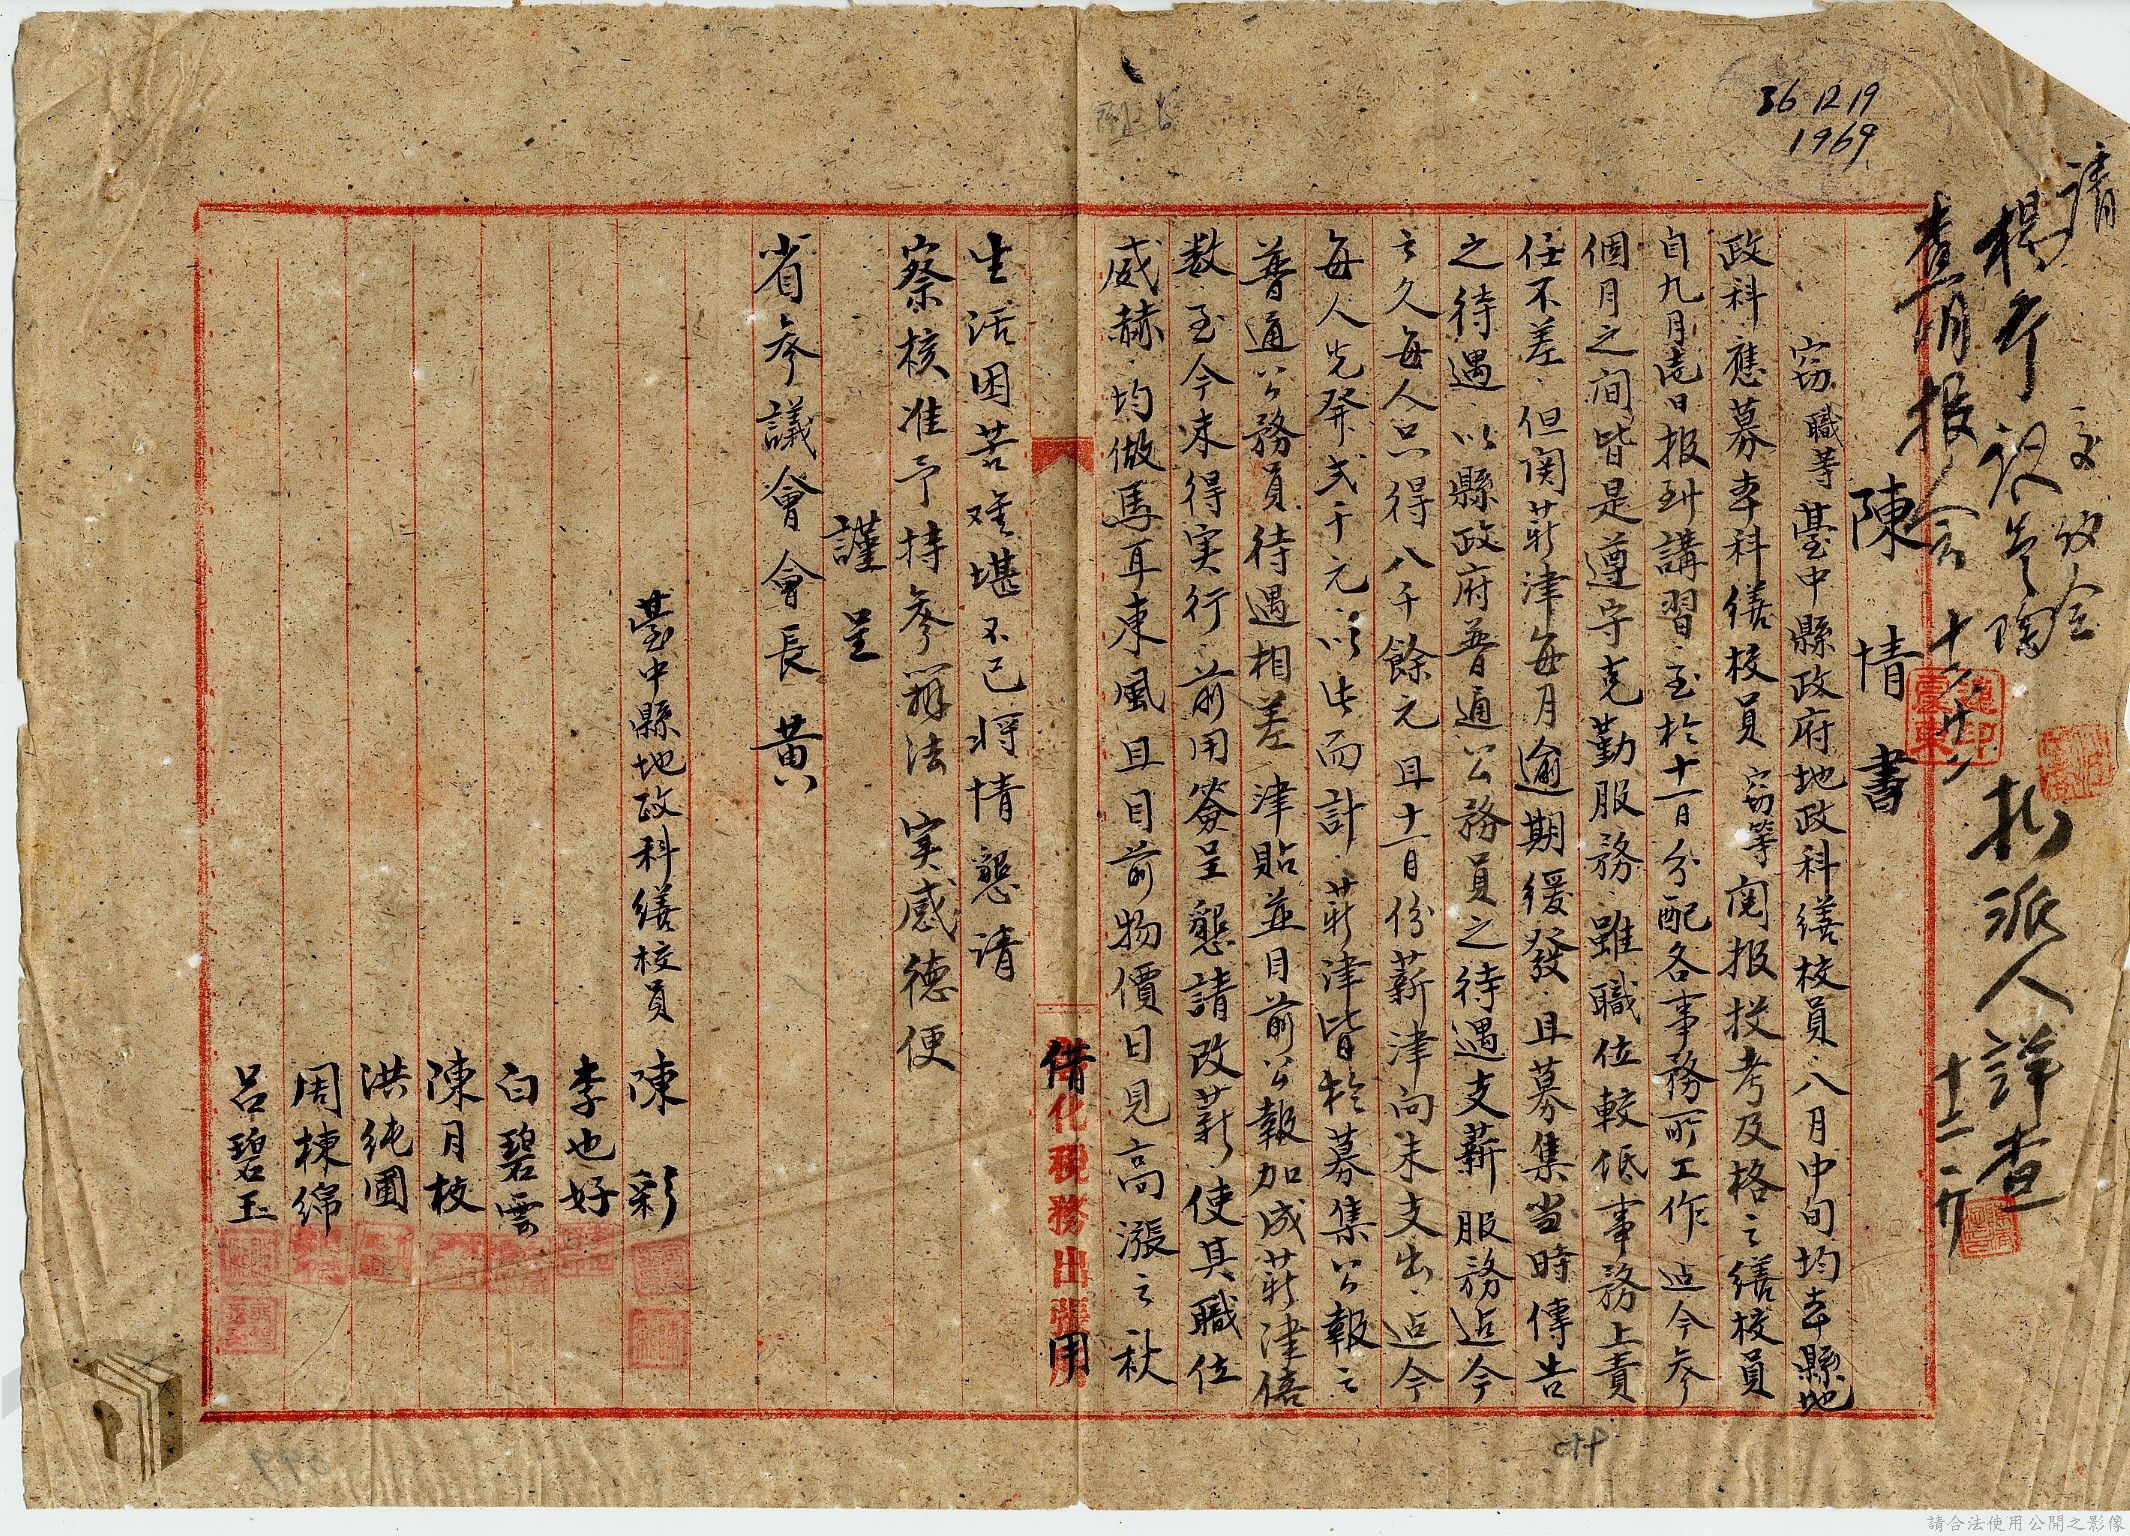 36 12 19
1969
請
查明报会
扎派人詳查
陳情書
竊職等臺中縣政府地政科繕校員八月中旬均本縣地
政科應募本科繕校員竊等閱报投考及格之繕校員
自九月壱日报到講習至於十一月分配各事務所工作迠今叁
個月之间皆是遵守克勤服務雖職位較低事務上責
任不差但関薪津每月逾期緩發且募集当時傳告
之待遇以縣政府普通公務員之待遇支薪服務迠今
之久每人只得八千餘元且十一月份薪津向未支出迠今
每人先発弍千元以此而計薪津皆於募集公報之
普通公務員待遇相差津貼並目前公報加成薪津倍
数至今未得実行前用簽呈懇請改薪使其職位
威赫均做馬耳東風且目前物價日見高漲之秋
借化税務出張用
生活困苦难堪不已将情懇请
察核准予持參辦法実感德便
謹呈
省參議會會長黄
臺中縣地政科繕校員陳彩
李也好
白碧雲
陳月枝
洪純圃
周棟綿
呂碧玉
請合法使用公開之影像